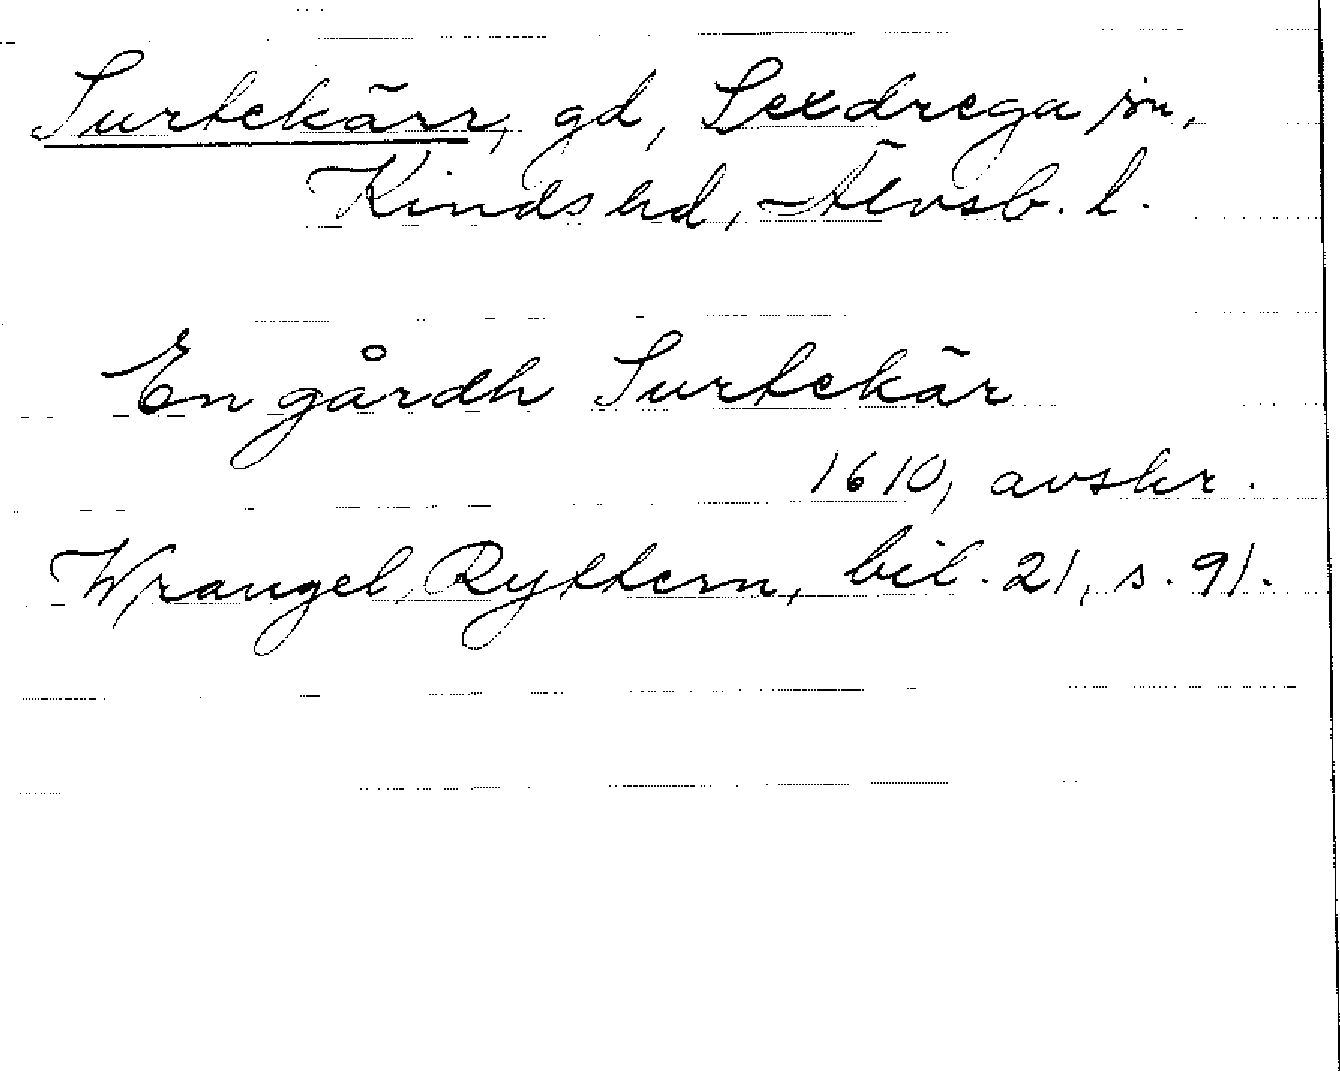 Surtekärr, gd, Sexdrega sn,
Kinds hd, Älvsb. l.
En gårdh Surtekär
1610, avskr.
Wrangel, Ryttern, bil. 21, s. 91.